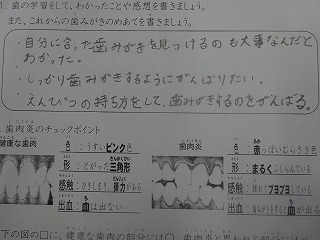 1. 歯の学習をして、わかったことや感想を書きましょう。
また、これからの歯みがきのめあてを書きましょう。
・自分に合った歯みがきを見つけるのも大事なんだと
わかった。
・しっかり歯みがきするようにがんばりたい。
・えんぴつの持ち方をして、歯みがきするのをがんばる。
歯肉炎のチェックポイント
健康な歯肉
色：うすいピンク色
形：とがった三角形
さんかくけい
感触：ひきしまり、弾力がある
出血：血は出ない
歯肉炎
しにくえん
色：赤っぽいむらさき色
形：まるくふくらんでいる
感触：腫れてブヨブヨしている
出血：歯みがきをすると血が出る
下の図の□に、健康な歯肉の部分には○、歯肉炎